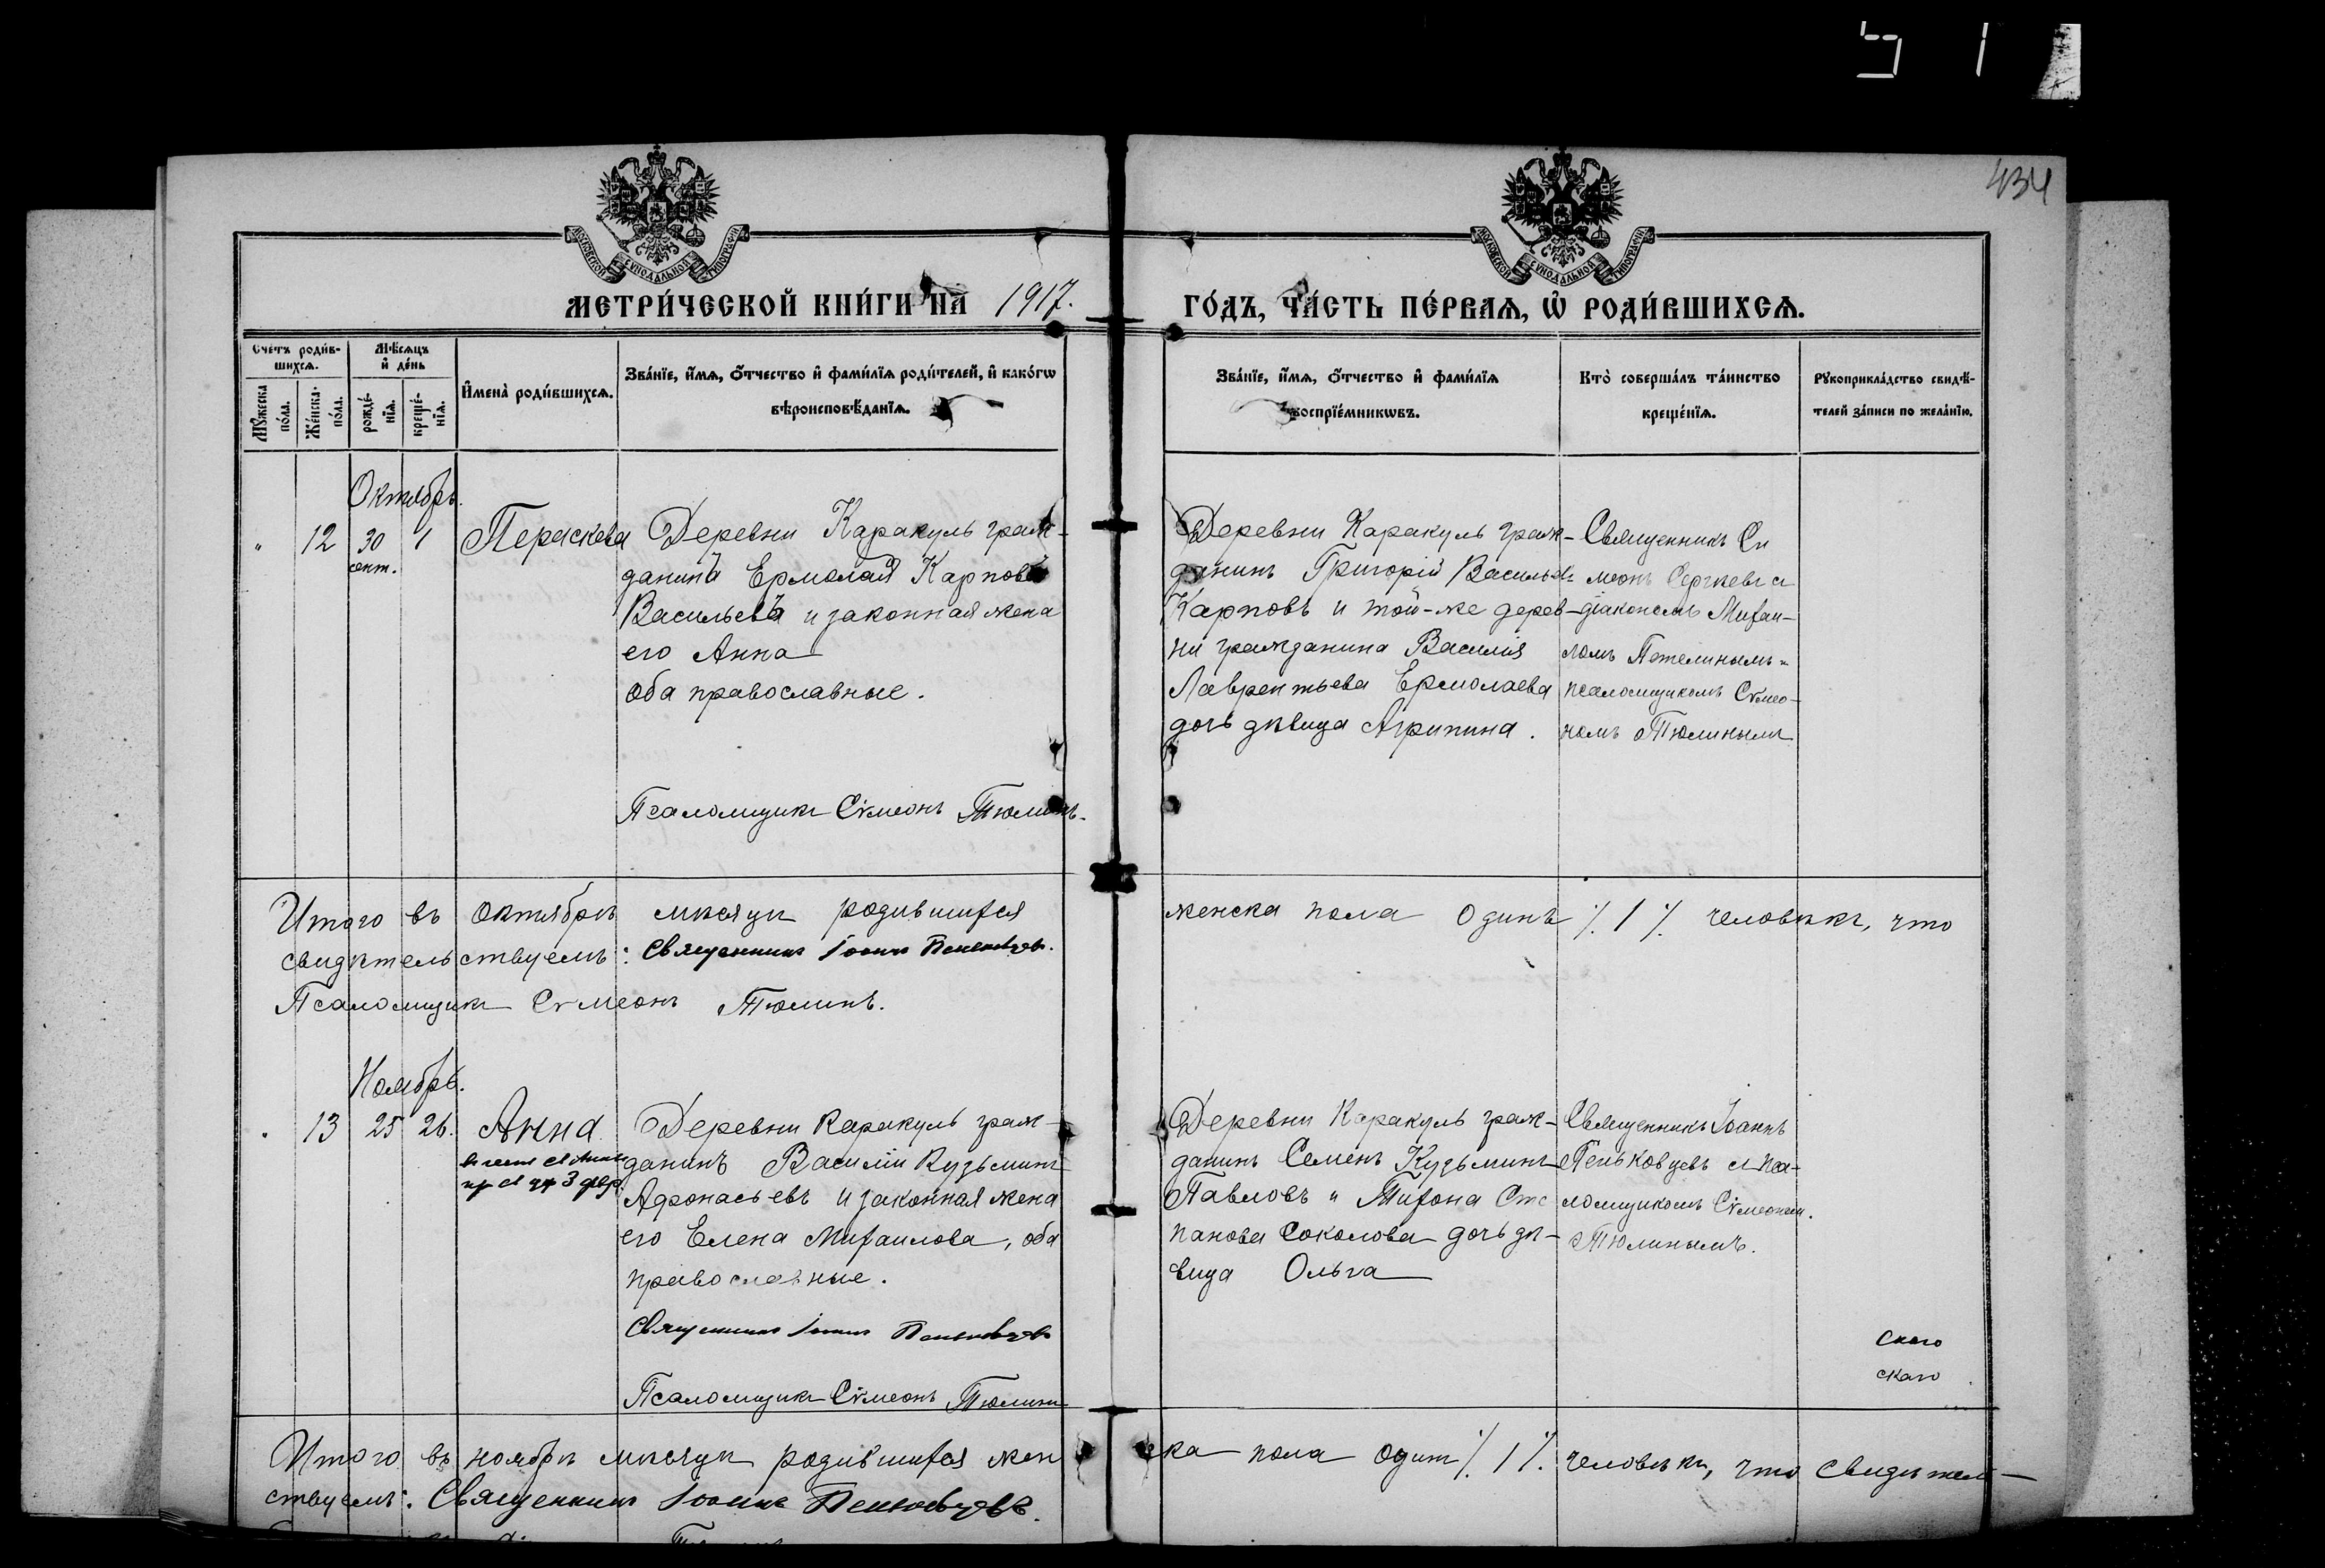 434
МОСКОВСКОЙ СѴНОДАЛЬНОЙ ТИПОГРАФІИ
МОСКОВСКОЙ СѴНОДАЛЬНОЙ ТИПОГРАФІИ
МЕТРИ́ЧЕСКОЙ КНИ́ГИ НА 1917. ГО́ДЪ, ЧА́СТЬ ПЕ́РВАЯ, Ѡ РОДИ́ВШИХСѦ.
Сче́тъ роди́в-
шихсѧ.
Мꙋ́жеска по́ла.
Же́нска по́ла.
Мѣ́сѧцъ
и҆ де́нь
рожде́-
нїѧ.
креще́-
нїѧ.
И҆мена̀ роди́вшихсѧ.
Зва́нїе, и҆́мѧ, ѻ҆́тчество и҆ фами́лїѧ роди́телей, и҆ како́гѡ
вѣроисповѣ́данїѧ.
Зва́нїе, и҆́мѧ, ѻ҆́тчество и҆ фами́лїѧ
воспрїе́мникѡвъ.
Кто̀ соверша́лъ та́инство
креще́нїѧ.
Рꙋкоприкла́дство свидѣ́-
телей за́писи по жела́нїю.
Октябрь.
" 12 30 1
сент.
Пераскева
Деревни Каракуль граж-
данина Ермолая Карпова
Васильева и законная жена
его Анна
оба православные.
Псаломщикъ Сѵмеонъ Тюлинъ.
Деревни Каракуль граж-
данинъ Григорій Васильевъ
Карповъ и той-же дерев-
ни гражданина Василія
Лаврентьева Ермолаева
дочь дѣвица Агрипина.
Священникъ Си
меонъ Сергѣевъ съ
діакономъ Михаи-
ломъ Петелинымъ и
псаломщикомъ Сѵмео-
номъ Тюлинымъ
Итого въ октябрѣ мѣсяцѣ родившихся женска пола одинъ /. 1 /. человѣкъ, что
свидѣтельствуемъ: Священникъ Іоаннъ Пеньковцевъ.
Псаломщикъ Сѵмеонъ Тюлинъ.
Ноябрь.
" 13 25 26.
Анна
Деревни Каракуль граж-
данинъ Василій Кузьминъ
Афонасьевъ и законная жена
его Елена Михаилова, оба
православные.
Священникъ Іоаннъ Пеньковцевъ
Псаломщикъ Сѵмеонъ Тюлинъ
Деревни Каракуль граж-
данинъ Семенъ Кузьминъ
Павловъ и Тихона Сте
панова Соколова дочь дѣ-
вица Ольга
Священникъ Іоаннъ
Пеньковцевъ съ пса-
ломщикомъ Сѵмеономъ
Тюлинымъ.
скаго
скаго
Итого въ ноябрѣ мѣсяцѣ родившихся женска пола одинъ /. 1 /. человѣкъ, что свидѣтель-
ствуемъ: Священникъ Іоаннъ Пеньковцевъ.